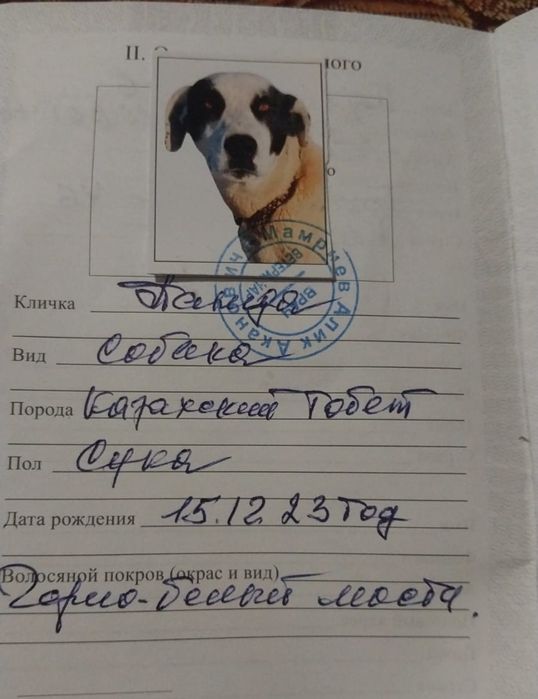 II. О ного
о
Мамриев Алик Акан
ВЕТЕРИНАР
ВРАЧ
Кличка
Вид Собака
Порода Казахский Тобет
Пол Сука
Дата рождения 15.12.23 год
Волосяной покров (окрас и вид)
Черно-белый